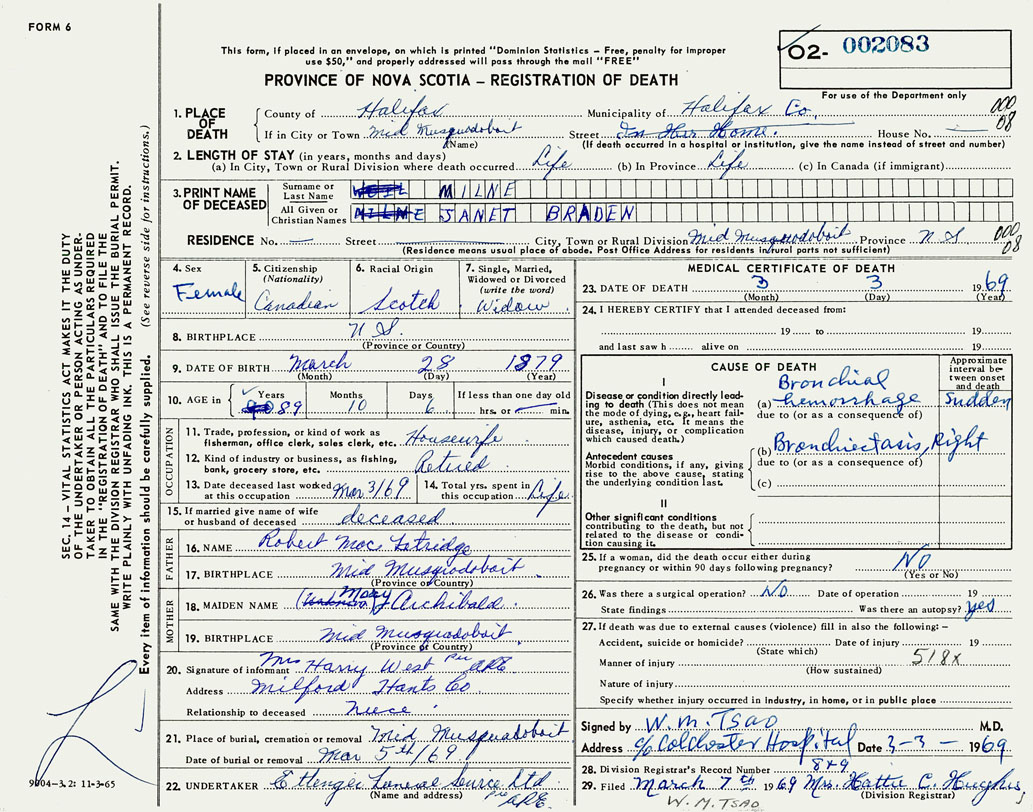 FORM 6
This form, if placed in an envelope, on which is printed "Dominion Statistics – Free, penalty for improper
use $50," and properly addressed will pass through the mail "FREE"
PROVINCE OF NOVA SCOTIA – REGISTRATION OF DEATH
O2- 002083
For use of the Department only
1. PLACE OF DEATH County of Halifax Municipality of Halifax Co. 000
If in City or Town Mid Musquodoboit Street In Her Home. House No. — 08
(Name) (If death occurred in a hospital or institution, give the name instead of street and number)
2. LENGTH OF STAY (in years, months and days)
(a) In City, Town or Rural Division where death occurred Life (b) In Province Life (c) In Canada (if immigrant)
3. PRINT NAME OF DECEASED Surname or Last Name MILNE
All Given or Christian Names MILNE JANET BRADEN
RESIDENCE No. — Street City, Town or Rural Division Mid Musquodoboit Province N S 000
08
(Residence means usual place of abode. Post Office Address for residents in rural parts not sufficient)
4. Sex Female
5. Citizenship (Nationality) Canadian
6. Racial Origin Scotch
7. Single, Married, Widowed or Divorced (write the word) Widow
8. BIRTHPLACE N S
(Province or Country)
9. DATE OF BIRTH March 28 1879
(Month) (Day) (Year)
10. AGE in Years 89 Months 10 Days 6 If less than one day old hrs. or min.
OCCUPATION
11. Trade, profession, or kind of work as fisherman, office clerk, sales clerk, etc. Housewife
12. Kind of industry or business, as fishing, bank, grocery store, etc. Retired
13. Date deceased last worked at this occupation Mar 3/69 14. Total yrs. spent in this occupation Life
15. If married give name of wife or husband of deceased deceased
FATHER
16. NAME Robert Mac Fetridge
17. BIRTHPLACE Mid Musquodoboit
(Province or Country)
MOTHER
18. MAIDEN NAME Mary Archibald
19. BIRTHPLACE Mid Musquodoboit
(Province or Country)
20. Signature of informant Mrs Harry West Per
Address Milford Hants Co
Relationship to deceased niece
21. Place of burial, cremation or removal Mid Musquodoboit
Date of burial or removal Mar 5th/69
22. UNDERTAKER Ettenger Funeral Service Ltd
(Name and address) Per
MEDICAL CERTIFICATE OF DEATH
23. DATE OF DEATH 3 3 1969
(Month) (Day) (Year)
24. I HEREBY CERTIFY that I attended deceased from:
19 to 19
and last saw h alive on 19
CAUSE OF DEATH
Approximate interval between onset and death
I
Disease or condition directly leading to death (This does not mean the mode of dying, e.g., heart failure, asthenia, etc. It means the disease, injury, or complication which caused death.)
(a) Bronchial hemorrhage Sudden
due to (or as a consequence of)
Antecedent causes
Morbid conditions, if any, giving rise to the above cause, stating the underlying condition last.
(b) Bronchiectasis, Right
due to (or as a consequence of)
(c)
II
Other significant conditions contributing to the death, but not related to the disease or condition causing it.
25. If a woman, did the death occur either during pregnancy or within 90 days following pregnancy? NO
(Yes or No)
26. Was there a surgical operation? NO Date of operation 19
State findings Was there an autopsy? yes
27. If death was due to external causes (violence) fill in also the following: –
Accident, suicide or homicide? Date of injury 19
(State which)
Manner of injury 518X
(How sustained)
Nature of injury
Specify whether injury occurred in industry, in home, or in public place
Signed by W. M. TSAO M.D.
Address c/o Colchester Hospital Date 3-3- 1969
28. Division Registrar's Record Number 849
29. Filed March 7th 1969 Mrs. Hattie C. Hughes
(Division Registrar)
W. M. TSAO
SEC. 14 – VITAL STATISTICS ACT MAKES IT THE DUTY
OF THE UNDERTAKER OR PERSON ACTING AS UNDER-
TAKER TO OBTAIN ALL THE PARTICULARS REQUIRED
IN THE "REGISTRATION OF DEATH" AND TO FILE THE
SAME WITH THE DIVISION REGISTRAR WHO SHALL ISSUE THE BURIAL PERMIT.
WRITE PLAINLY WITH UNFADING INK. THIS IS A PERMANENT RECORD.
Every item of information should be carefully supplied. (See reverse side for instructions.)
9904-3.2: 11-3-65